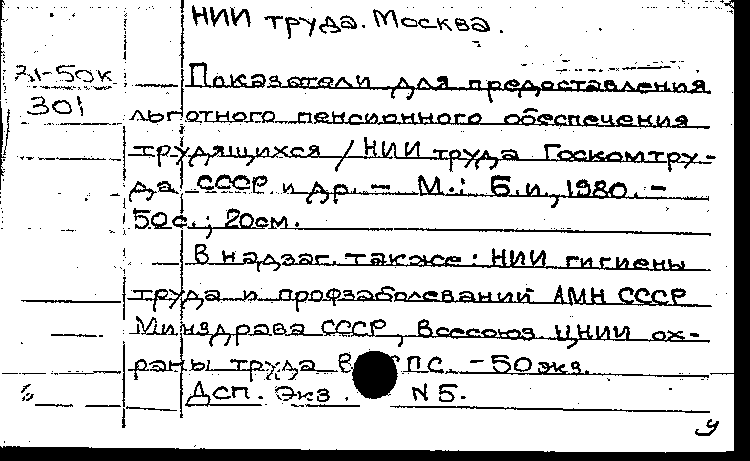 НИИ труда. Москва.
31-50к
301
Показатели для предоставления
льготного пенсионного обеспечения
трудящихся / НИИ труда Госкомтру-
да СССР и др. - М.: Б.и., 1980. -
50с.; 20см.
В надзаг. также: НИИ гигиены
труда и профзаболеваний АМН СССР
Минздрава СССР, Всесоюз. ЦНИИ ох-
раны труда СПС. - 50 экз.
Дсп. Экз. N5.
у